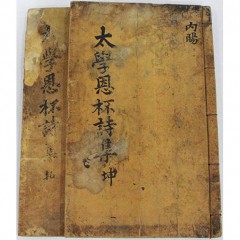 內賜
太學恩杯詩集 坤
學恩杯詩集 乾